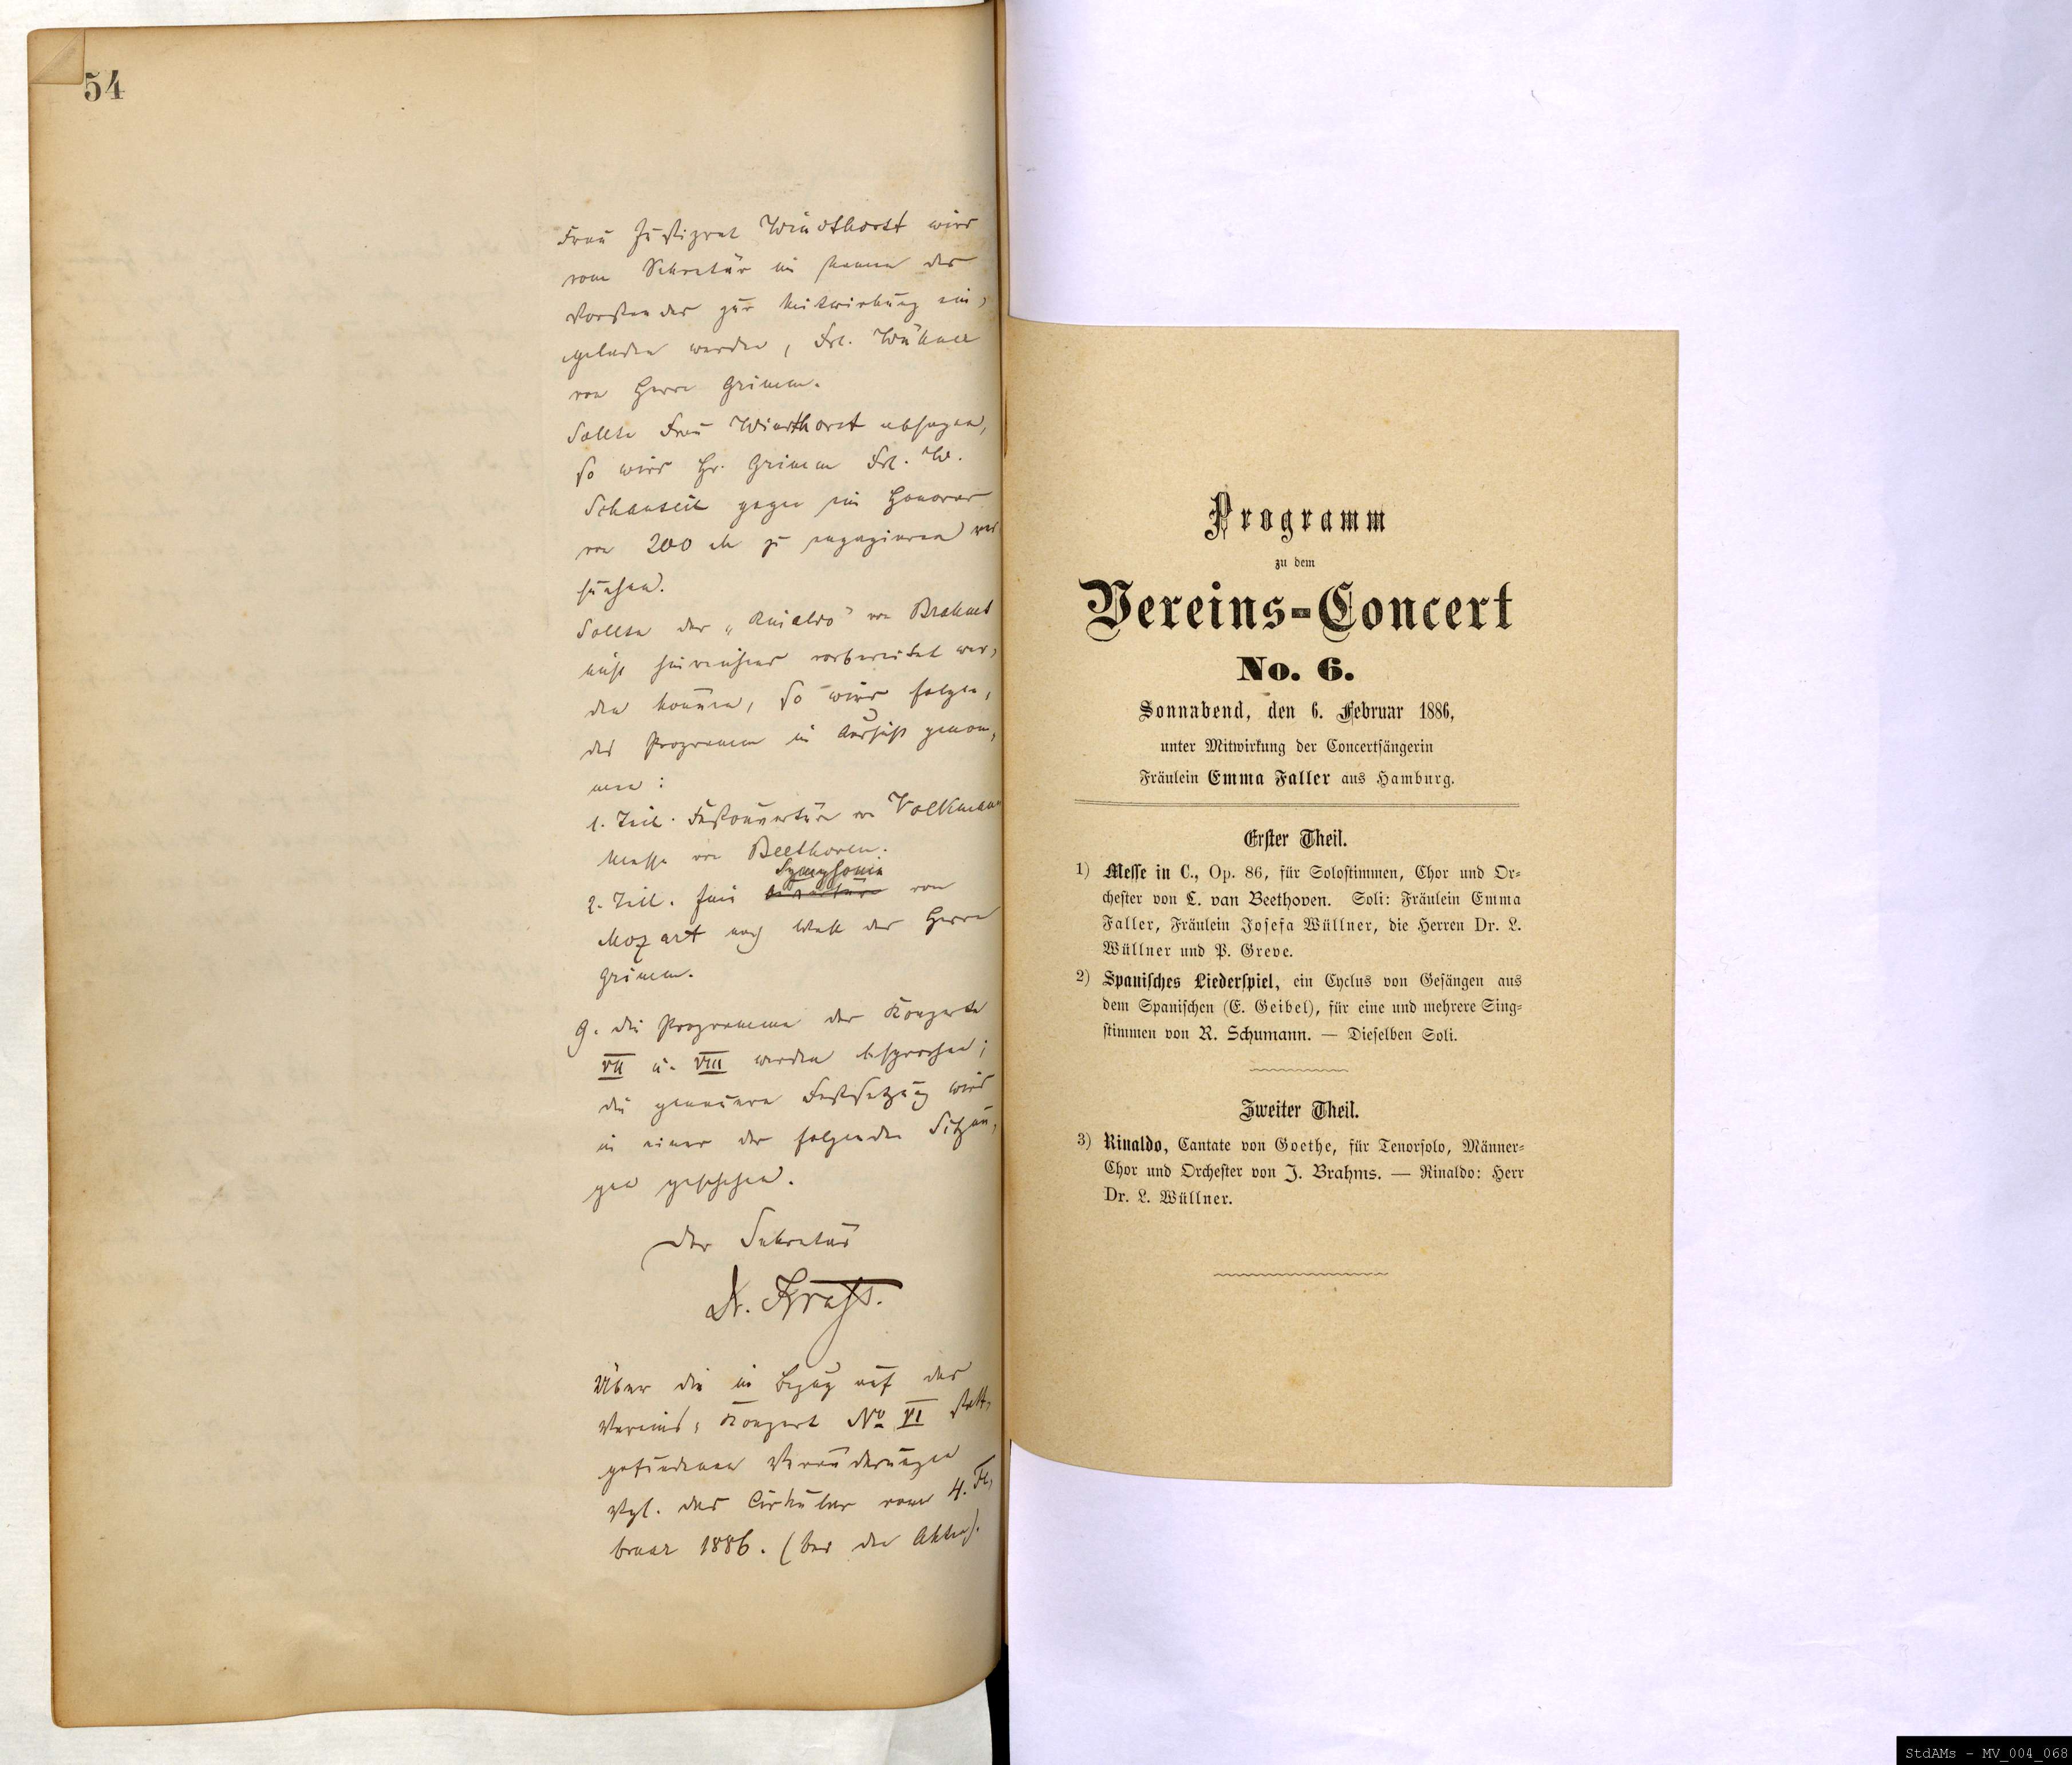 54
Frau Justizrat Windthorst wird
vom Sekretär im Namen des
Vorstandes zur Mitwirkung ein-
geladen werden, Frl.
von Herrn Grimm.
Sollte Frau Windthorst absagen,
so wird Hr. Grimm Frl. W.
Schauseil gegen ein Honorar
von 200 M zu engagieren ver
suchen.
Sollte der „Rinaldo" von Brahms
nicht hinreichend vorbereitet wer-
den können, so wird folgen-
des Programm in Aussicht genom-
men:
1. Teil. Festouvertüre von Volkmann
Messe von Beethoven.
Symphonie
2. Teil. Eine von
Mozart nach Wahl des Herrn
Grimm.
9. Die Programme der Konzerte
VII u. VIII werden besprochen;
die genauere Festsetzung wird
in einer der folgenden Sitzun-
gen geschehen.
Der Sekretär
Dr. Krafs.
Über die in Bezug auf das
Vereins-Konzert No VI statt-
gefundenen Veränderungen
Vgl. das Cirkular vom 4. Fe-
bruar 1886. (bei den Akten).
Programm
zu dem
Vereins-Concert
No. 6.
Sonnabend, den 6. Februar 1886,
unter Mitwirkung der Concertsängerin
Fräulein Emma Faller aus Hamburg.
Erster Theil.
1) Messe in C., Op. 86, für Solostimmen, Chor und Or-
chester von L. van Beethoven. Soli: Fräulein Emma
Faller, Fräulein Josefa Wüllner, die Herren Dr. L.
Wüllner und P. Greve.
2) Spanisches Liederspiel, ein Cyclus von Gesängen aus
dem Spanischen (E. Geibel), für eine und mehrere Sing-
stimmen von R. Schumann. — Dieselben Soli.
Zweiter Theil.
3) Rinaldo, Cantate von Goethe, für Tenorsolo, Männer-
Chor und Orchester von J. Brahms. — Rinaldo: Herr
Dr. L. Wüllner.
StdAMs - MV_004_068